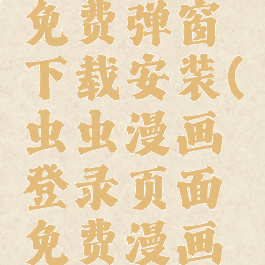 免费弹窗
下载安装(
虫虫漫画
登录页面
免费漫画